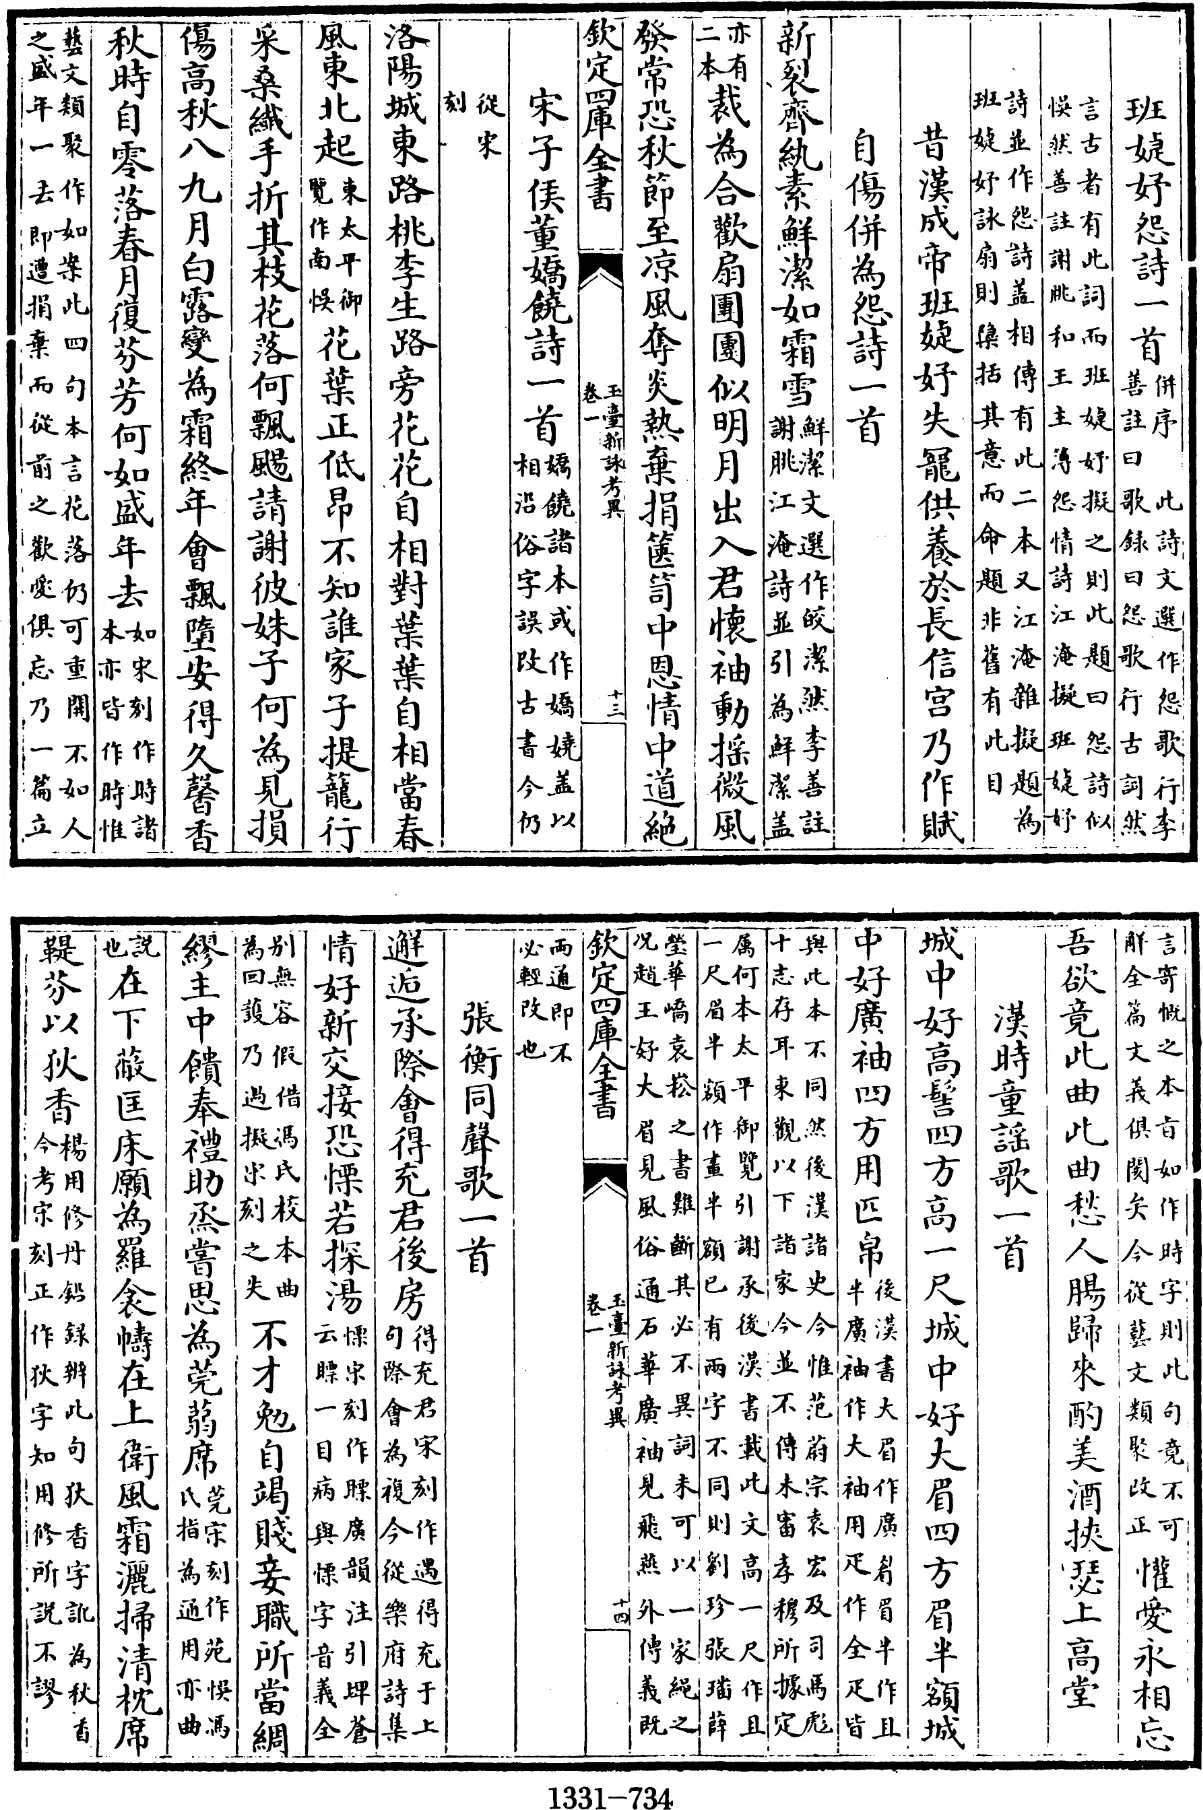 班婕妤怨詩一首併序 此詩文選作怨歌行李
善註曰歌錄曰怨歌行古詞然
言古者有此詞而班婕妤擬之則此題曰怨詩似
悞然善註謝朓和王主簿怨情詩江淹擬班婕妤
詩並作怨詩蓋相傳有此二本又江淹雜擬題為
班婕妤詠扇則櫽括其意而命題非舊有此目
昔漢成帝班婕妤失寵供養於長信宮乃作賦
自傷併為怨詩一首
新裂齊紈素鮮潔如霜雪鮮潔文選作皎潔然李善註
謝朓江淹詩並引為鮮潔盖
亦有
二本裁為合歡扇團團似明月出入君懷袖動搖微風
發常恐秋節至凉風奪炎熱棄捐篋笥中恩情中道絕
欽定四庫全書
玉臺新詠考異
卷一
十三
宋子侯董嬌饒詩一首嬌饒諸本或作嬌嬈盖以
相沿俗字誤改古書今仍
從宋
刻
洛陽城東路桃李生路旁花花自相對葉葉自相當春
風東北起東太平御
覽作南悞花葉正低昂不知誰家子提籠行
采桑纖手折其枝花落何飄颺請謝彼姝子何為見損
傷高秋八九月白露變為霜終年會飄墮安得久馨香
秋時自零落春月復芬芳何如盛年去如宋刻作時諸
本亦皆作時惟
藝文類聚作如案此四句本言花落仍可重開不如人
之盛年一去即遭捐棄而從前之歡愛俱忘乃一篇立
言寄慨之本旨如作時字則此句竟不可
解全篇文義俱閡矣今從藝文類聚改正懽愛永相忘
吾欲竟此曲此曲愁人腸歸來酌美酒挾瑟上高堂
漢時童謡歌一首
城中好高髻四方高一尺城中好大眉四方眉半額城
中好廣袖四方用匹帛後漢書大眉作廣眉眉半作且
半廣袖作大袖用疋作全疋皆
與此本不同然後漢諸史今惟范蔚宗袁宏及司馬彪
十志存耳東觀以下諸家今並不傳未審孝穆所據定
屬何本太平御覽引謝承後漢書載此文高一尺作且
一尺眉半額作畫半額已有兩字不同則劉珍張璠薛
瑩華嶠袁崧之書難斷其必不異詞未可以一家繩之
况趙王好大眉見風俗通石華廣袖見飛燕外傳義既
欽定四庫全書
玉臺新詠考異
卷一
十四
兩通即不
必輕改也
張衡同聲歌一首
邂逅承際會得充君後房得充君宋刻作遇得充于上
句際會為複今從樂府詩集
情好新交接恐慄若探湯慄宋刻作瞟廣韻注引埤蒼
云瞟一目病與慄字音義全
别無容假借馮氏校本曲
為回護乃過擬宋刻之失不才勉自竭賤妾職所當綢
繆主中饋奉禮助烝嘗思為莞蒻席莞宋刻作苑悞馮
氏指為通用亦曲
說
也在下蔽匡床願為羅衾幬在上衛風霜灑掃清枕席
鞮芬以狄香楊用修丹鉛録辨此句狄香字訛為秋香
今考宋刻正作狄字知用修所説不謬
1331-734